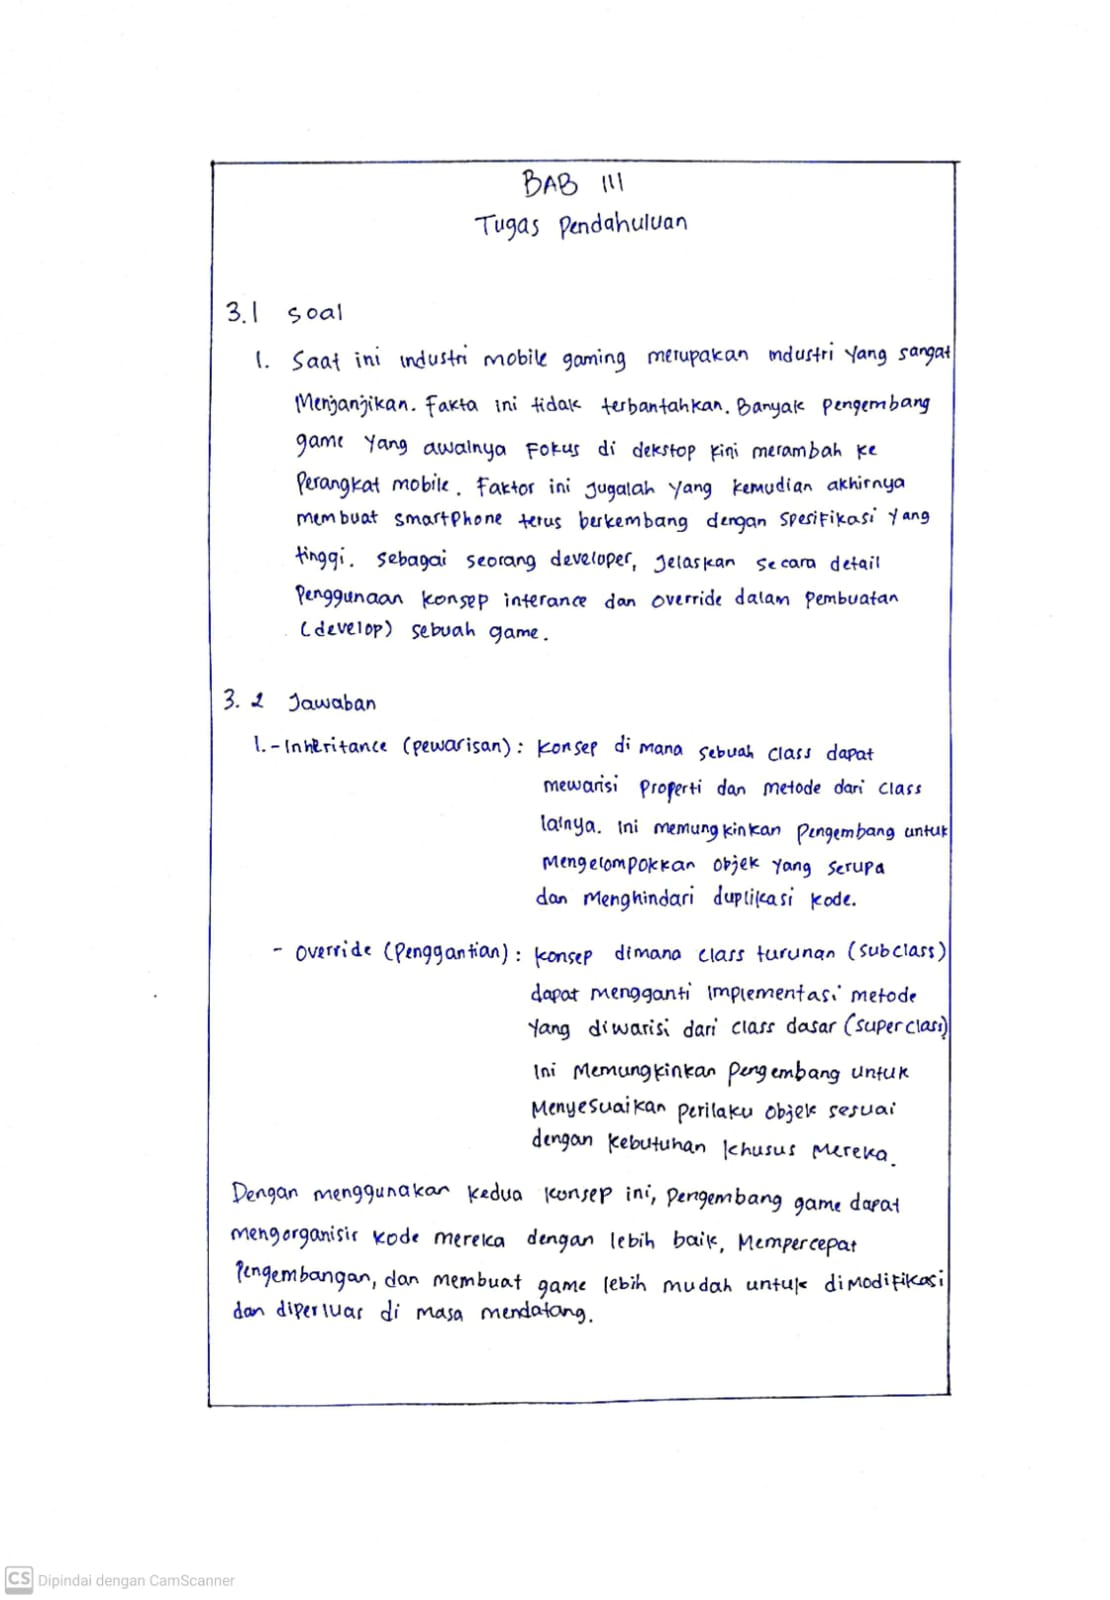 BAB III
Tugas Pendahuluan
3.1 Soal
1. Saat ini industri mobile gaming merupakan industri yang sangat
Menjanjikan. Fakta ini tidak terbantahkan. Banyak pengembang
game yang awalnya Fokus di dekstop kini merambah ke
Perangkat mobile. Faktor ini jugalah yang kemudian akhirnya
membuat smartphone terus berkembang dengan spesifikasi yang
tinggi. sebagai seorang developer, jelaskan secara detail
Penggunaan konsep interance dan override dalam pembuatan
(develop) sebuah game.
3.2 Jawaban
1. - Inheritance (pewarisan) : Konsep di mana sebuah class dapat
mewarisi properti dan metode dari class
lainya. Ini memungkinkan pengembang untuk
Mengelompokkan objek yang serupa
dan Menghindari duplikasi kode.
- Override (Penggantian) : konsep dimana class turunan (subclass)
dapat mengganti implementasi metode
yang diwarisi dari class dasar (superclass)
Ini Memungkinkan pengembang untuk
Menyesuaikan perilaku objek sesuai
dengan kebutuhan khusus Mereka.
Dengan menggunakan kedua konsep ini, pengembang game dapat
mengorganisir kode mereka dengan lebih baik, Mempercepat
Pengembangan, dan membuat game lebih mudah untuk dimodifikasi
dan diperluas di masa mendatang.
CS Dipindai dengan CamScanner